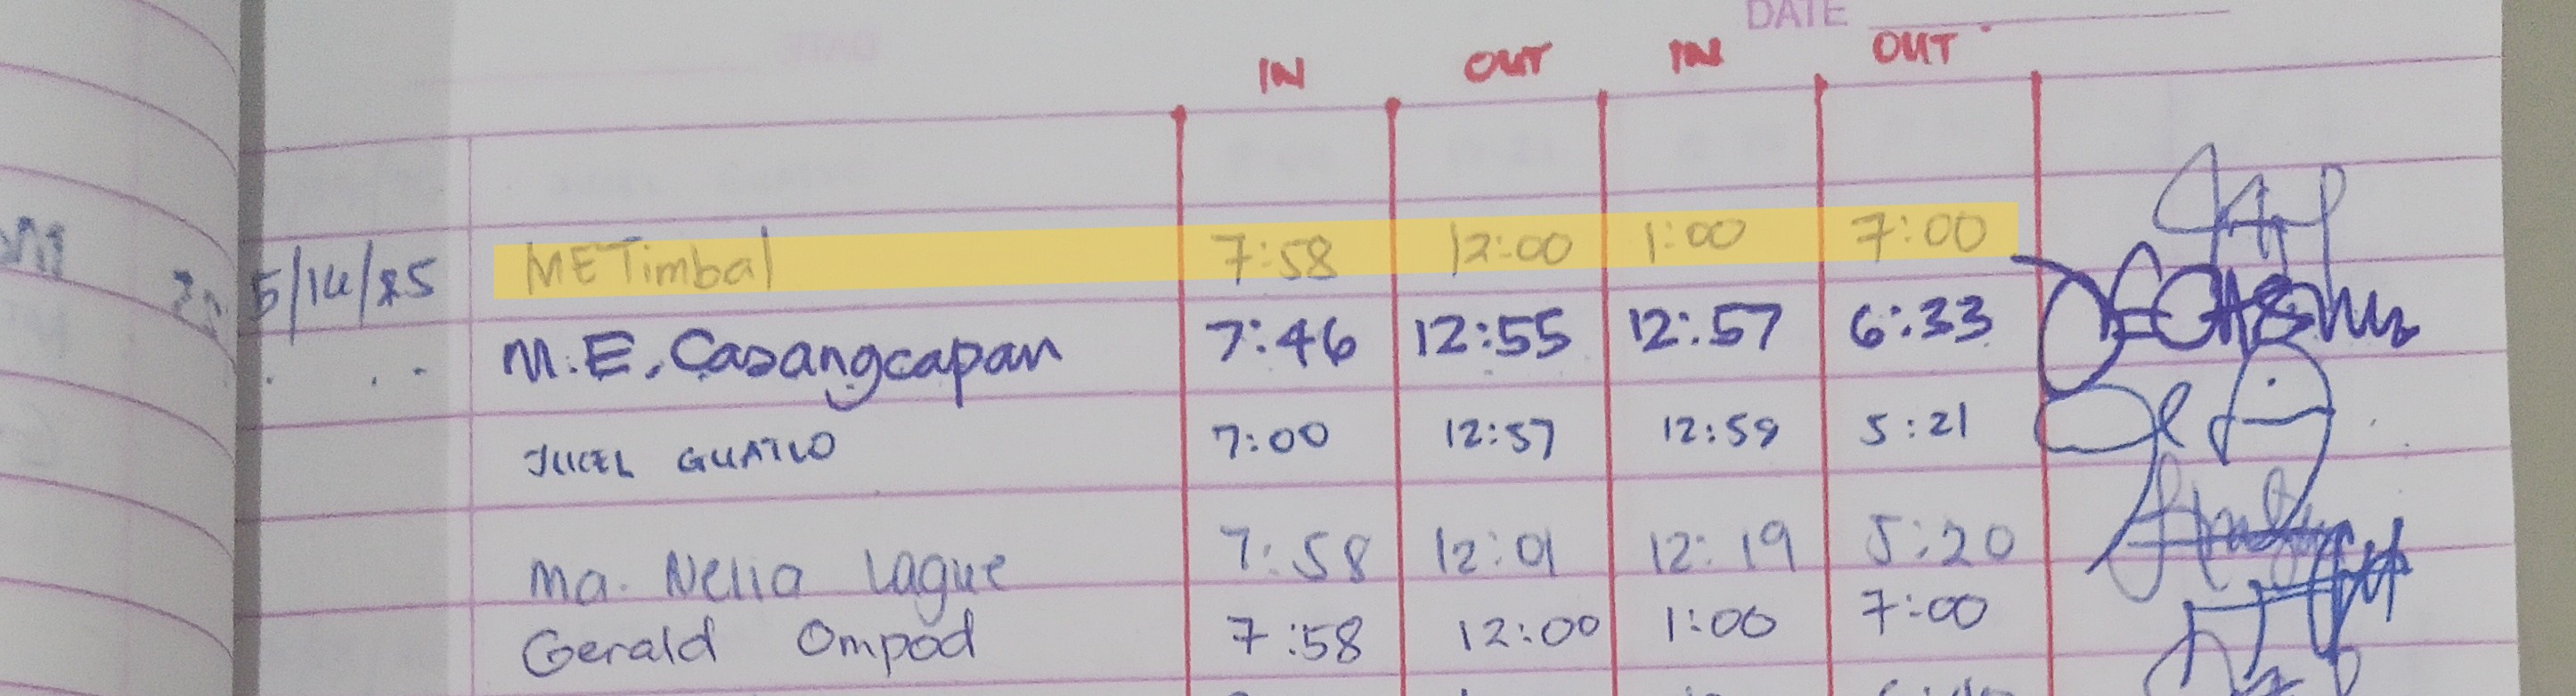 DATE
IN OUT IN OUT
5/14/25 METimbal 7:58 12:00 1:00 7:00
M.E. Casangcapan 7:46 12:55 12:57 6:33
JUCEL GUATLO 7:00 12:57 12:59 5:21
Ma. Nelia Lague 7:58 12:01 12:19 5:20
Gerald Ompod 7:58 12:00 1:00 7:00